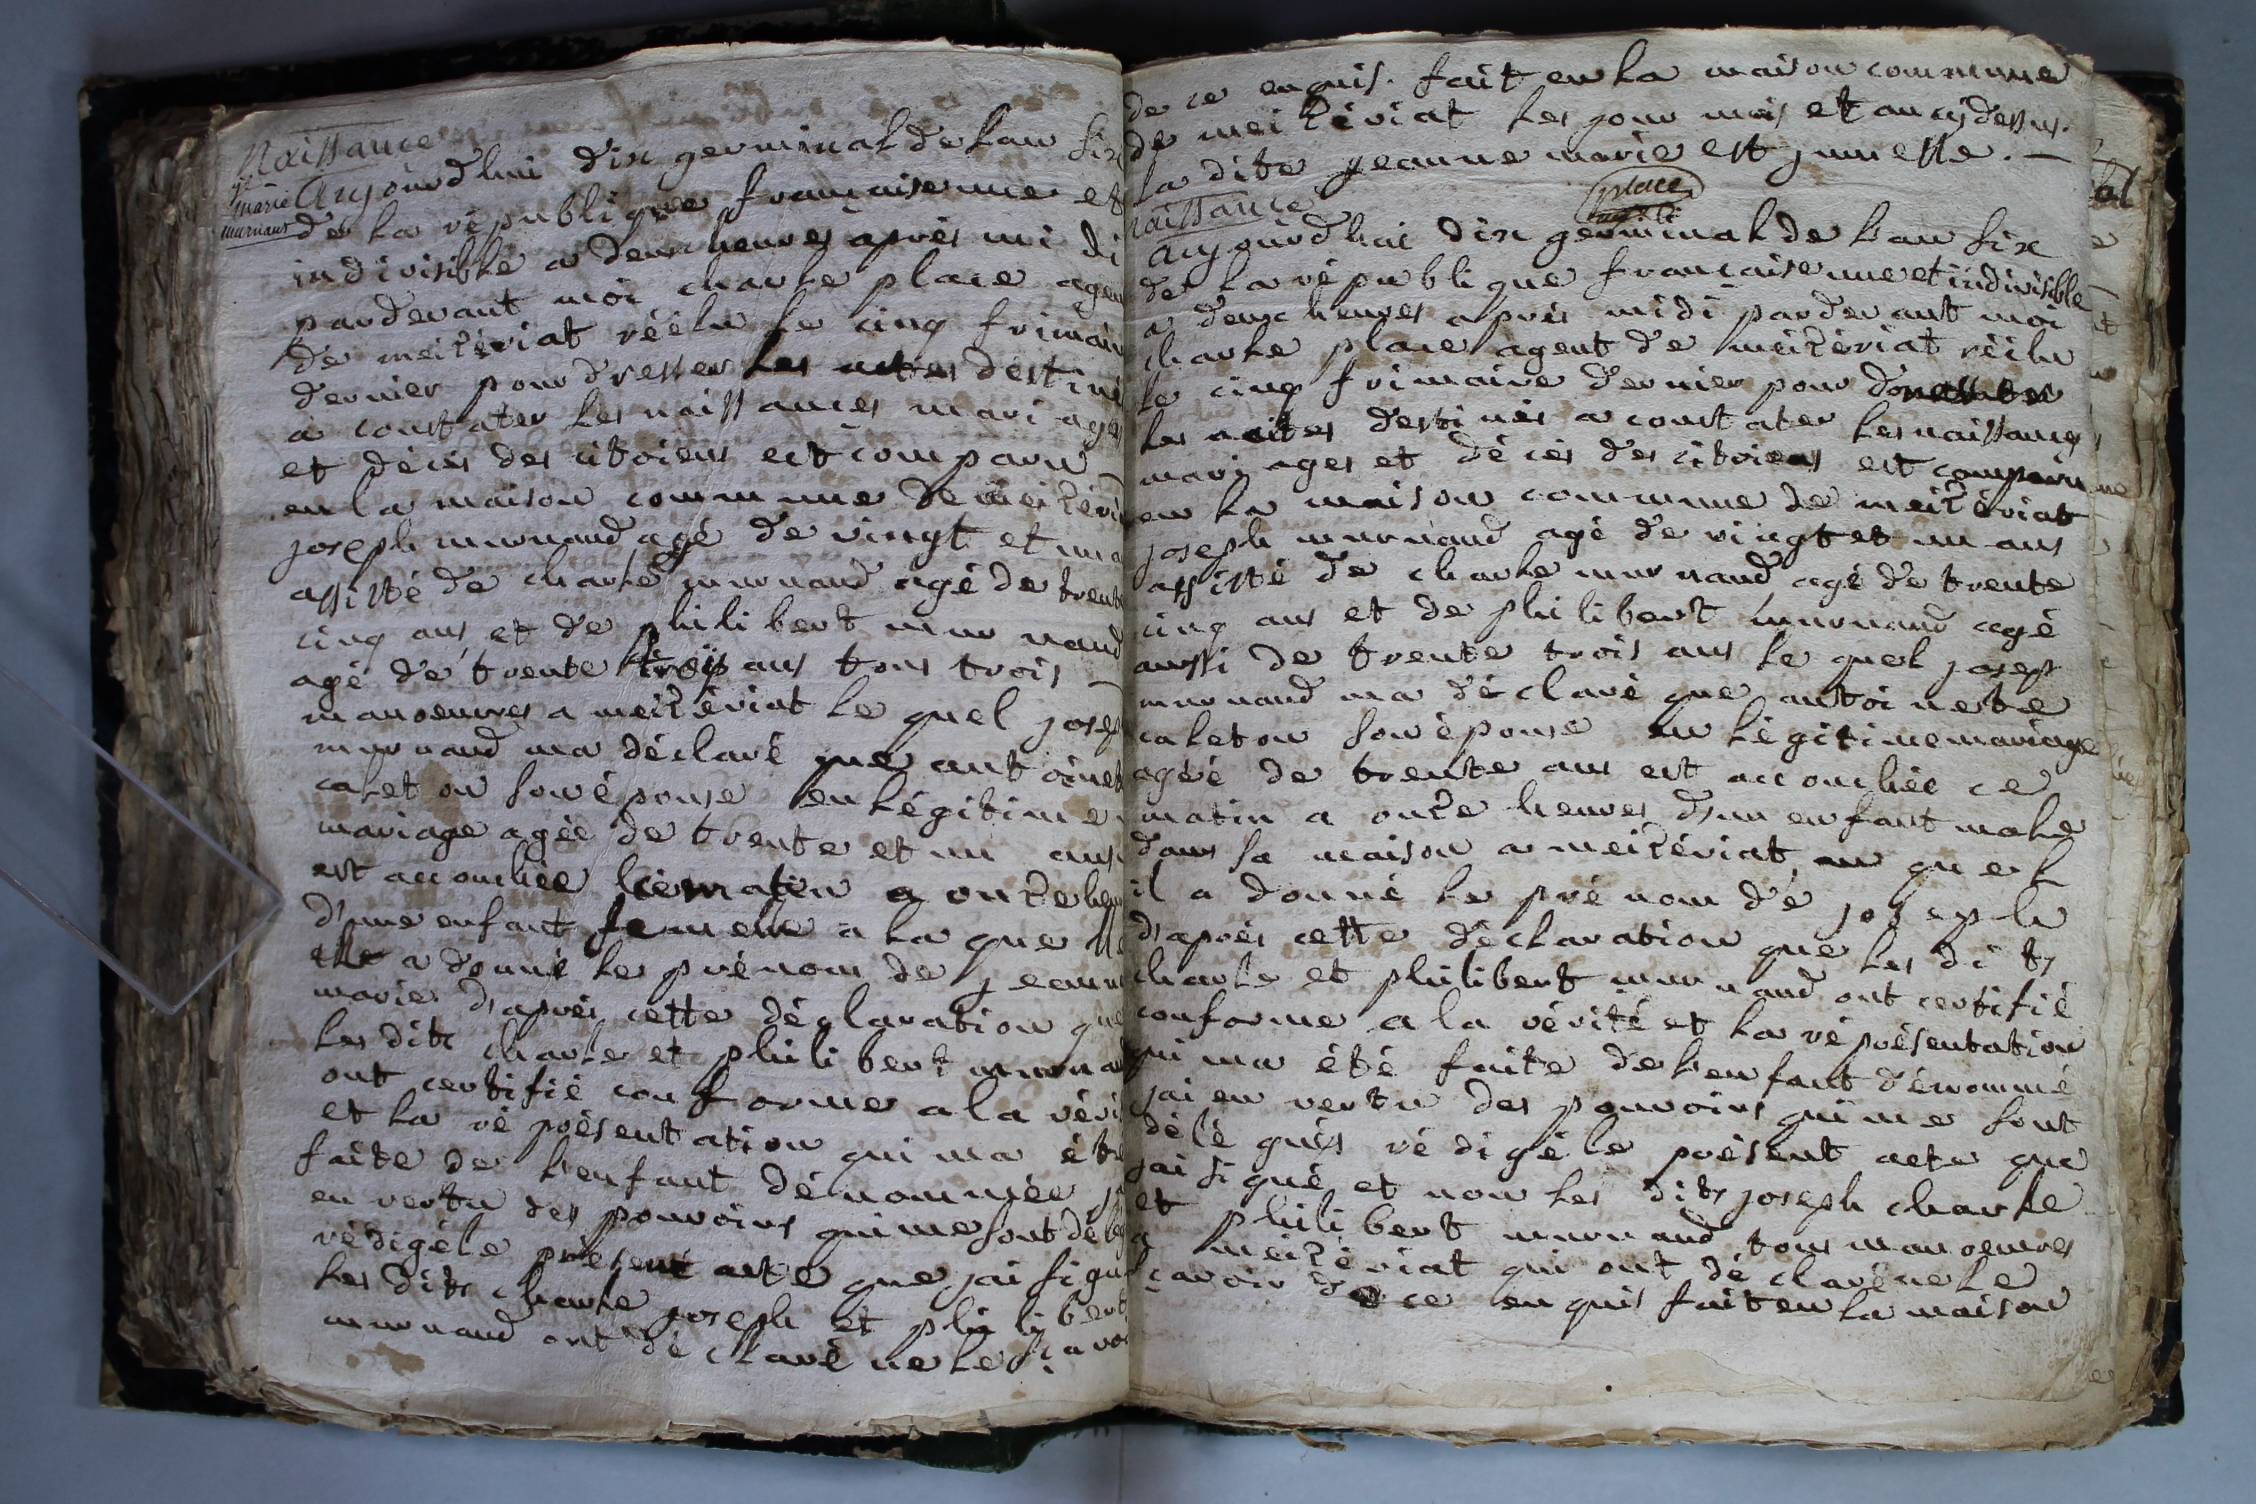 Naissance
marie
murnand
Aujourdhui dix germinal de lan six
de la république française une et
indivisible a deux heures après mi di
pardevant moi charle place agen
de meizériat réélu le cinq frimair
dernier pour dresser les actes destiné
à constater les naissances mariages
et décès des citoiens est comparu
en la maison commune de meizéria
joseph murnand agé de vingt et un a
assisté de charle murnand agé de trente
cinq ans et de philibert murnand
agé de trente trois ans tous trois
manoeuvres a meizériat le quel josep
murnand ma déclaré que antoinet
caleton son épouse en légitime
mariage agée de trente et un ans
est accouchée ce matin a onze heu
d'une enfant femelle a la quelle
elle a donné le prénom de jeanne
marie d'après cette déclaration que
les dits charle et philibert murnand
ont certifié conforme a la véri
et la réprésentation qui ma été
faite de l'enfant dénommée j'a
en vertu des pouvoirs qui me sont délég
rédigé le présent acte que jai signé
les dits charle joseph et philibert
murnand ont déclaré ne le sçavoi
de ce enquis. fait en la maison commune
de meizériat les jour mois et an cy dessus.
la dite jeanne marie est jumelle. —
place
naissance
Aujourdhui dix germinal de lan six
de la république française une et indivisible
a deux heures après midi pardevant moi
charle place agent de meizériat réélu
le cinq frimaire dernier pour dresser
les actes destinés a constater les naissances
mariages et décès des citoiens est comparu
en la maison commune de meizériat
joseph murnand agé de vingt et un ans
assisté de charle murnand agé de trente
cinq ans et de philibert murnand agé
aussi de trente trois ans le quel josep
murnand ma déclaré que antoinete
caleton son épouse en légitime mariage
agée de trente ans est accouchée ce
matin a onze heures d'un enfant male
dans sa maison a meizériat au quel
il a donné le prénom de joseph
d'après cette déclaration que les dits
charle et philibert murnand ont certifié
conforme a la vérité et la réprésentation
qui ma été faite de l'enfant dénommé
jai en vertu des pouvoirs qui me sont
délégués rédigé le présent acte que
jai signé et non les dits joseph charle
et philibert murnand tous manoeuvres
a meizériat qui ont déclaré ne le
sçavoir de ce enquis fait en la maison